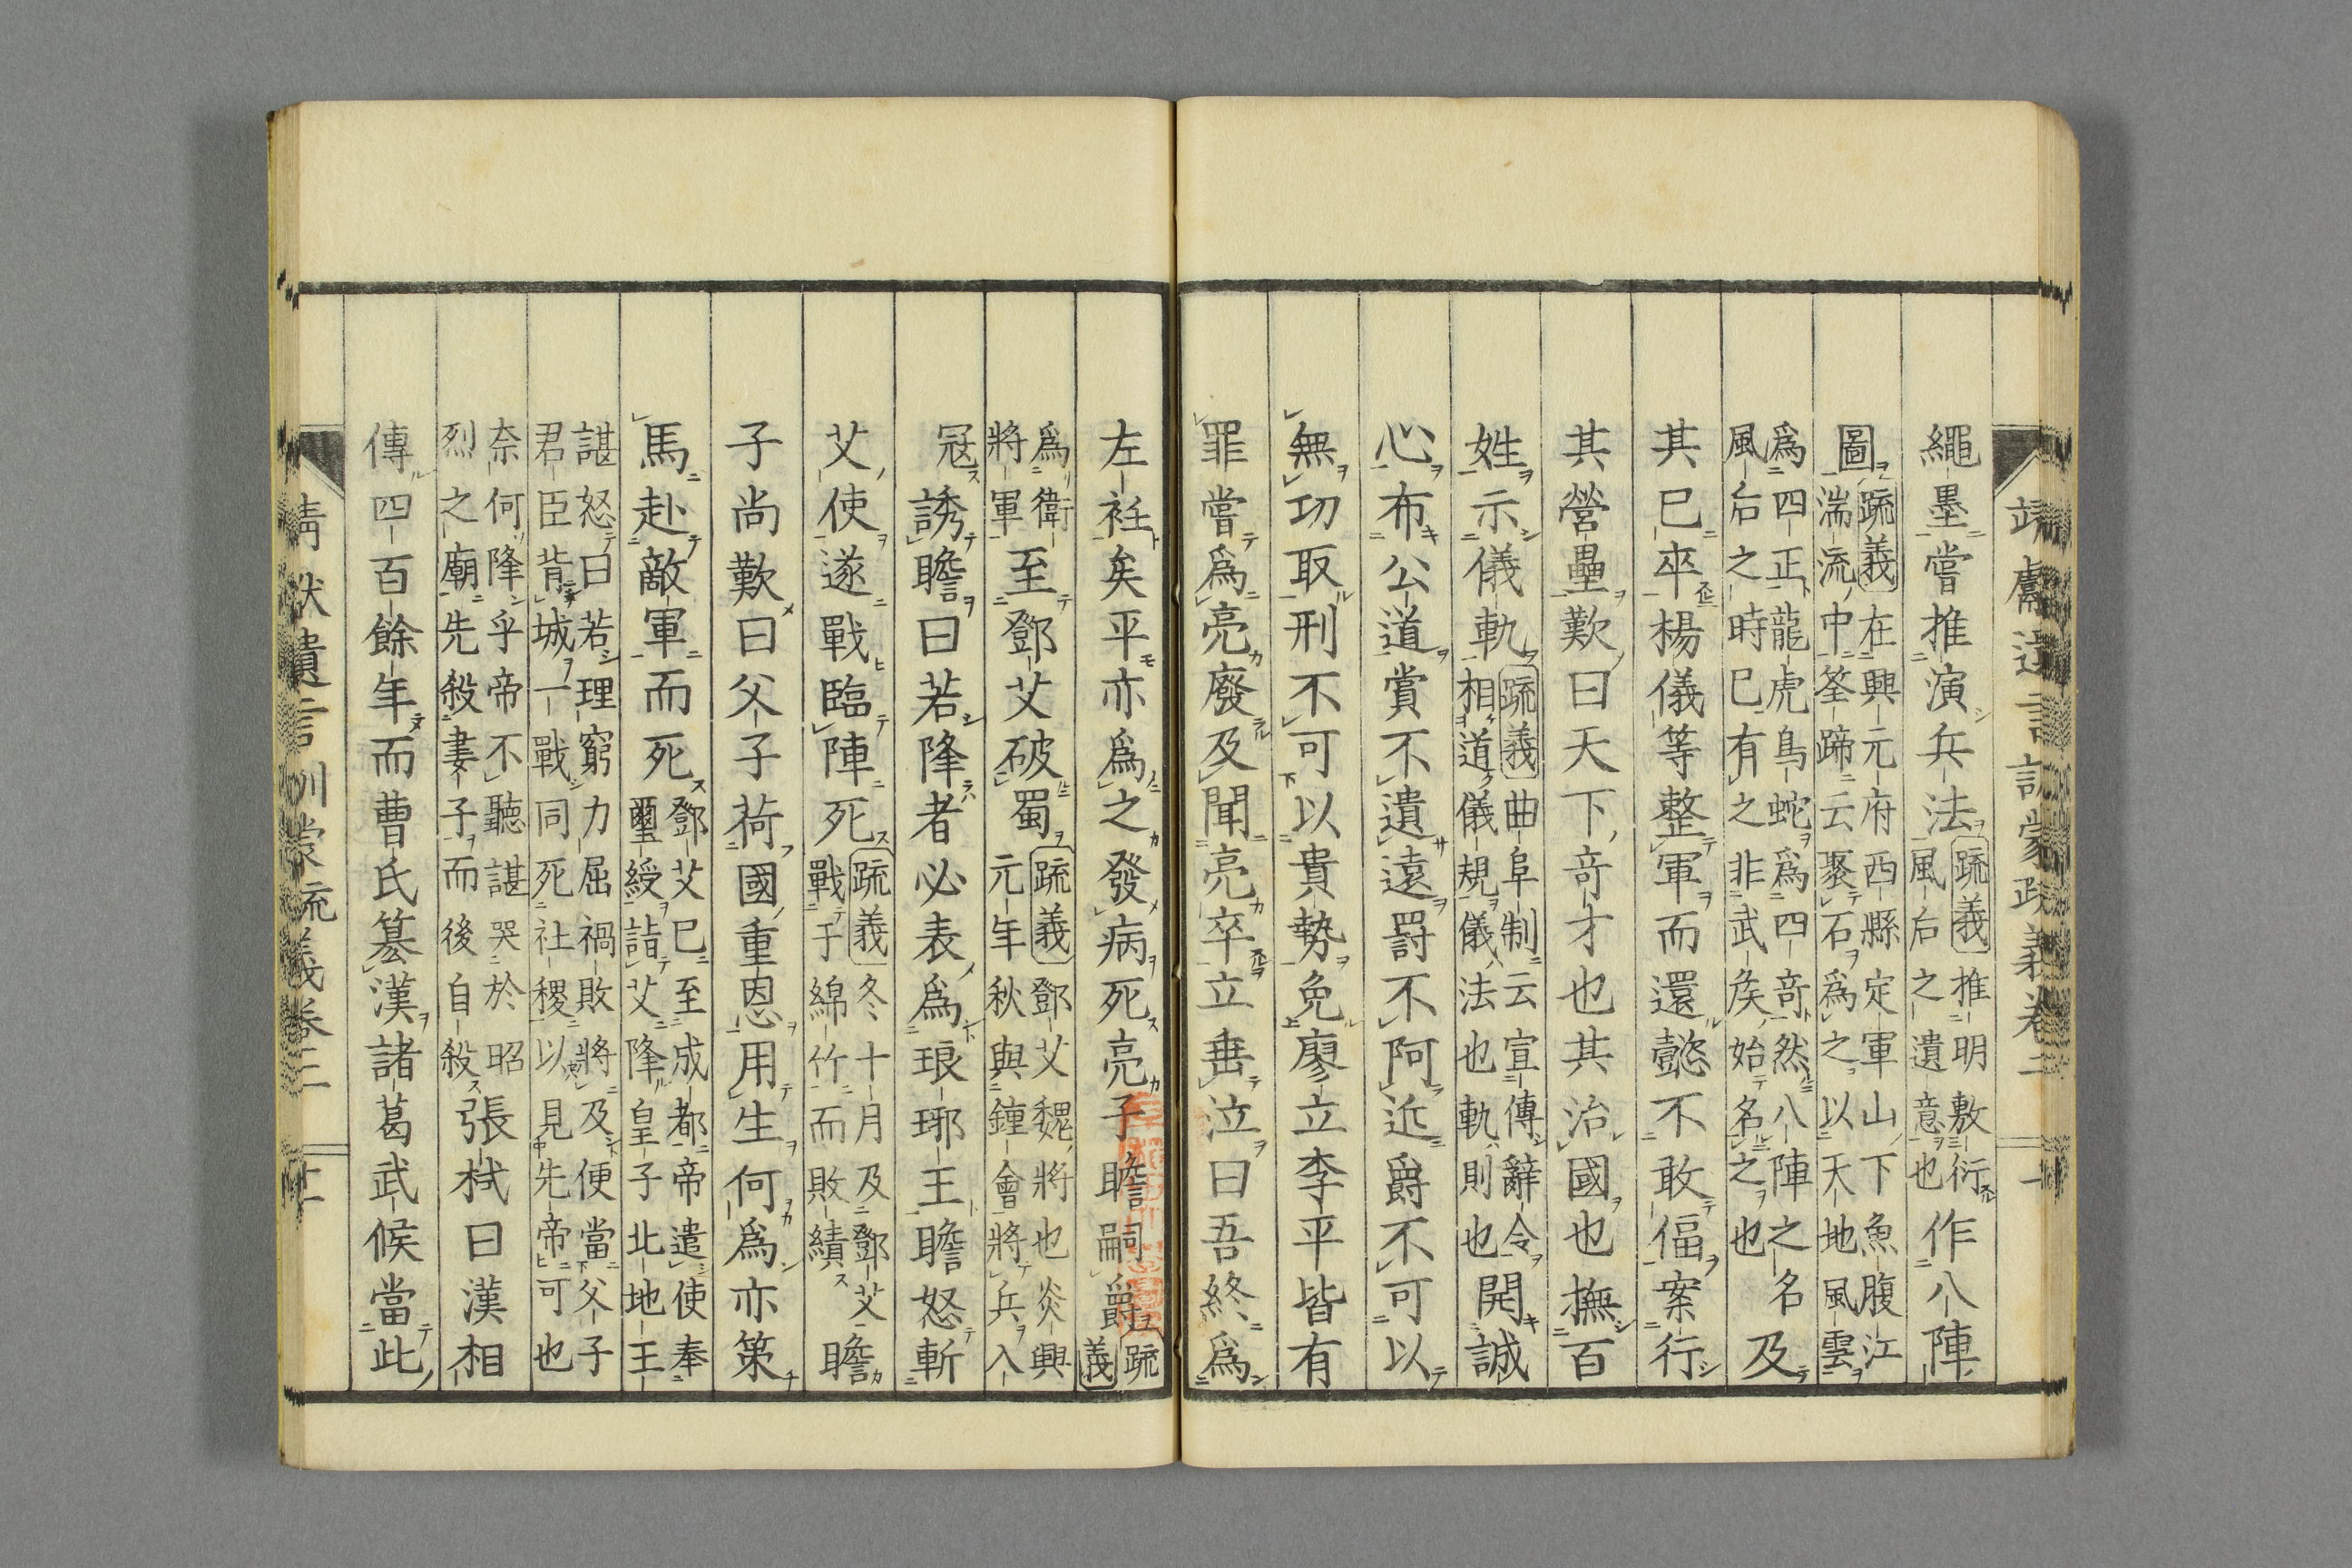 繩墨嘗推演兵法疏義推明敷衍風后之遺意也作八陣
圖疏義在興元府西縣定軍山下魚腹江湍流中筌蹄云聚石爲之以天地風雲
爲四正龍虎鳥蛇爲四竒然八陣之名風后之時已有之非武矦始名之也及
其已卒楊儀等整軍而還懿不敢偪案行
其營壘歎曰天下竒才也其治國也撫百
姓示儀軌疏義曲阜制云宣傳辭令相道儀規儀法也軌則也開誠
心布公道賞不遺遠罰不阿近爵不可以
無功取刑不可以貴勢免廖立李平皆有
罪嘗爲亮廢及聞亮卒立垂泣曰吾終爲
左衽矣平亦爲之發病死亮子瞻嗣爵疏義
爲衛將軍至鄧艾破蜀疏義鄧艾魏將也炎興元年秋與鐘會將兵入
冦誘瞻曰若降者必表爲琅琊王瞻怒斬
艾使遂戰臨陣死疏義冬十月及鄧艾戰于綿竹而敗績瞻
子尚歎曰父子荷國重恩用生何爲亦策
馬赴敵軍而死鄧艾已至成都帝遣使奉璽綬詣艾降皇子北地王
諶怒曰若理窮力屈禍敗將及便當父子君臣背城一戰同死社稷以見先帝可也
奈何降乎帝不聽諶哭於昭烈之廟先殺妻子而後自殺張栻曰漢相
傳四百餘年而曹氏簒漢諸葛武候當此
靖獻遺言訓蒙疏義卷二